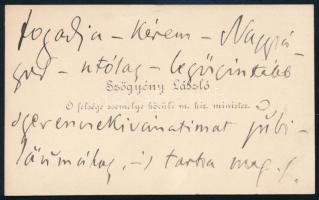 fogadja – Kérem – Nagysá-
god – utólag – legőszintébb
Szögyény László
Ő felsége személye körüli m. kir. minister.
szerencsekivánatimat jubi-
láumálag, –s tartsa meg